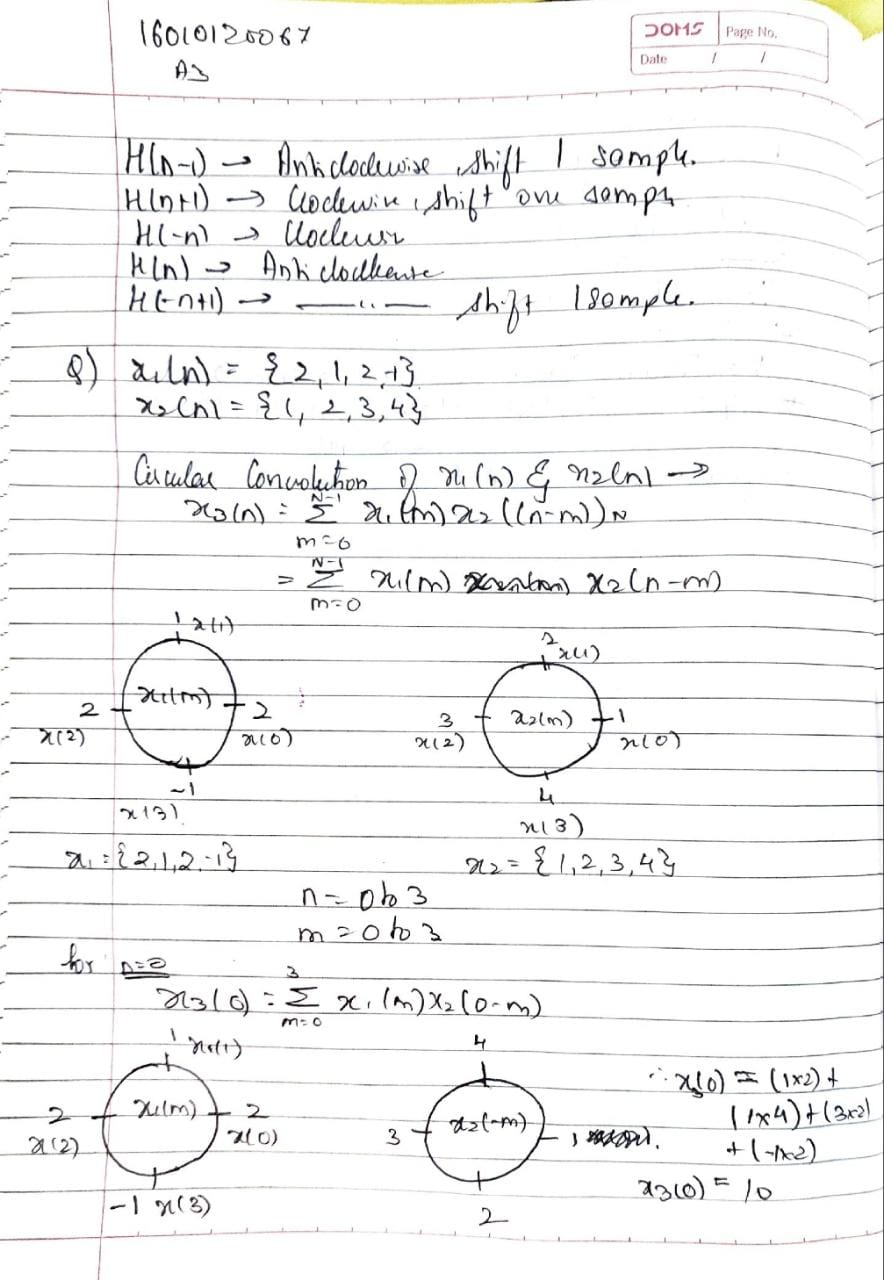 16010120067
A3
DOMS Page No.
Date / /
H(n-1) → Anticlockwise, shift 1 sample.
H(n+1) → Clockwise, shift one sample
H(-n) →
H(n) →
H(-n+1) → —〃— shift 1 sample.
Q) x₁(n) = {2, 1, 2, -1}
x₂(n) = {1, 2, 3, 4}
Circular Convolution of x₁(n) & x₂(n) →
x₃(n) = Σ_{m=0}^{N-1} x₁(m) x₂((n-m))_N
= Σ_{m=0}^{N-1} x₁(m) x₂(n-m)
1 x(1)
2 x₁(m) 2
x(2) x(0)
-1
x(3)
2
x(1)
3 x₂(m) 1
x(2) x(0)
4
x(3)
x₁ = {2,1,2,-1} x₂ = {1,2,3,4}
n = 0 to 3
m = 0 to 3
for n=0
x₃(0) = Σ_{m=0}^{3} x₁(m) x₂(0-m)
1 x₁(1)
2 x₁(m) 2
x(2) x(0)
-1 x(3)
4
3 x₂(-m) 1
2
∴ x₃(0) = (1×2) +
(1×4) + (3×2)
+ (-1×2)
x₃(0) = 10